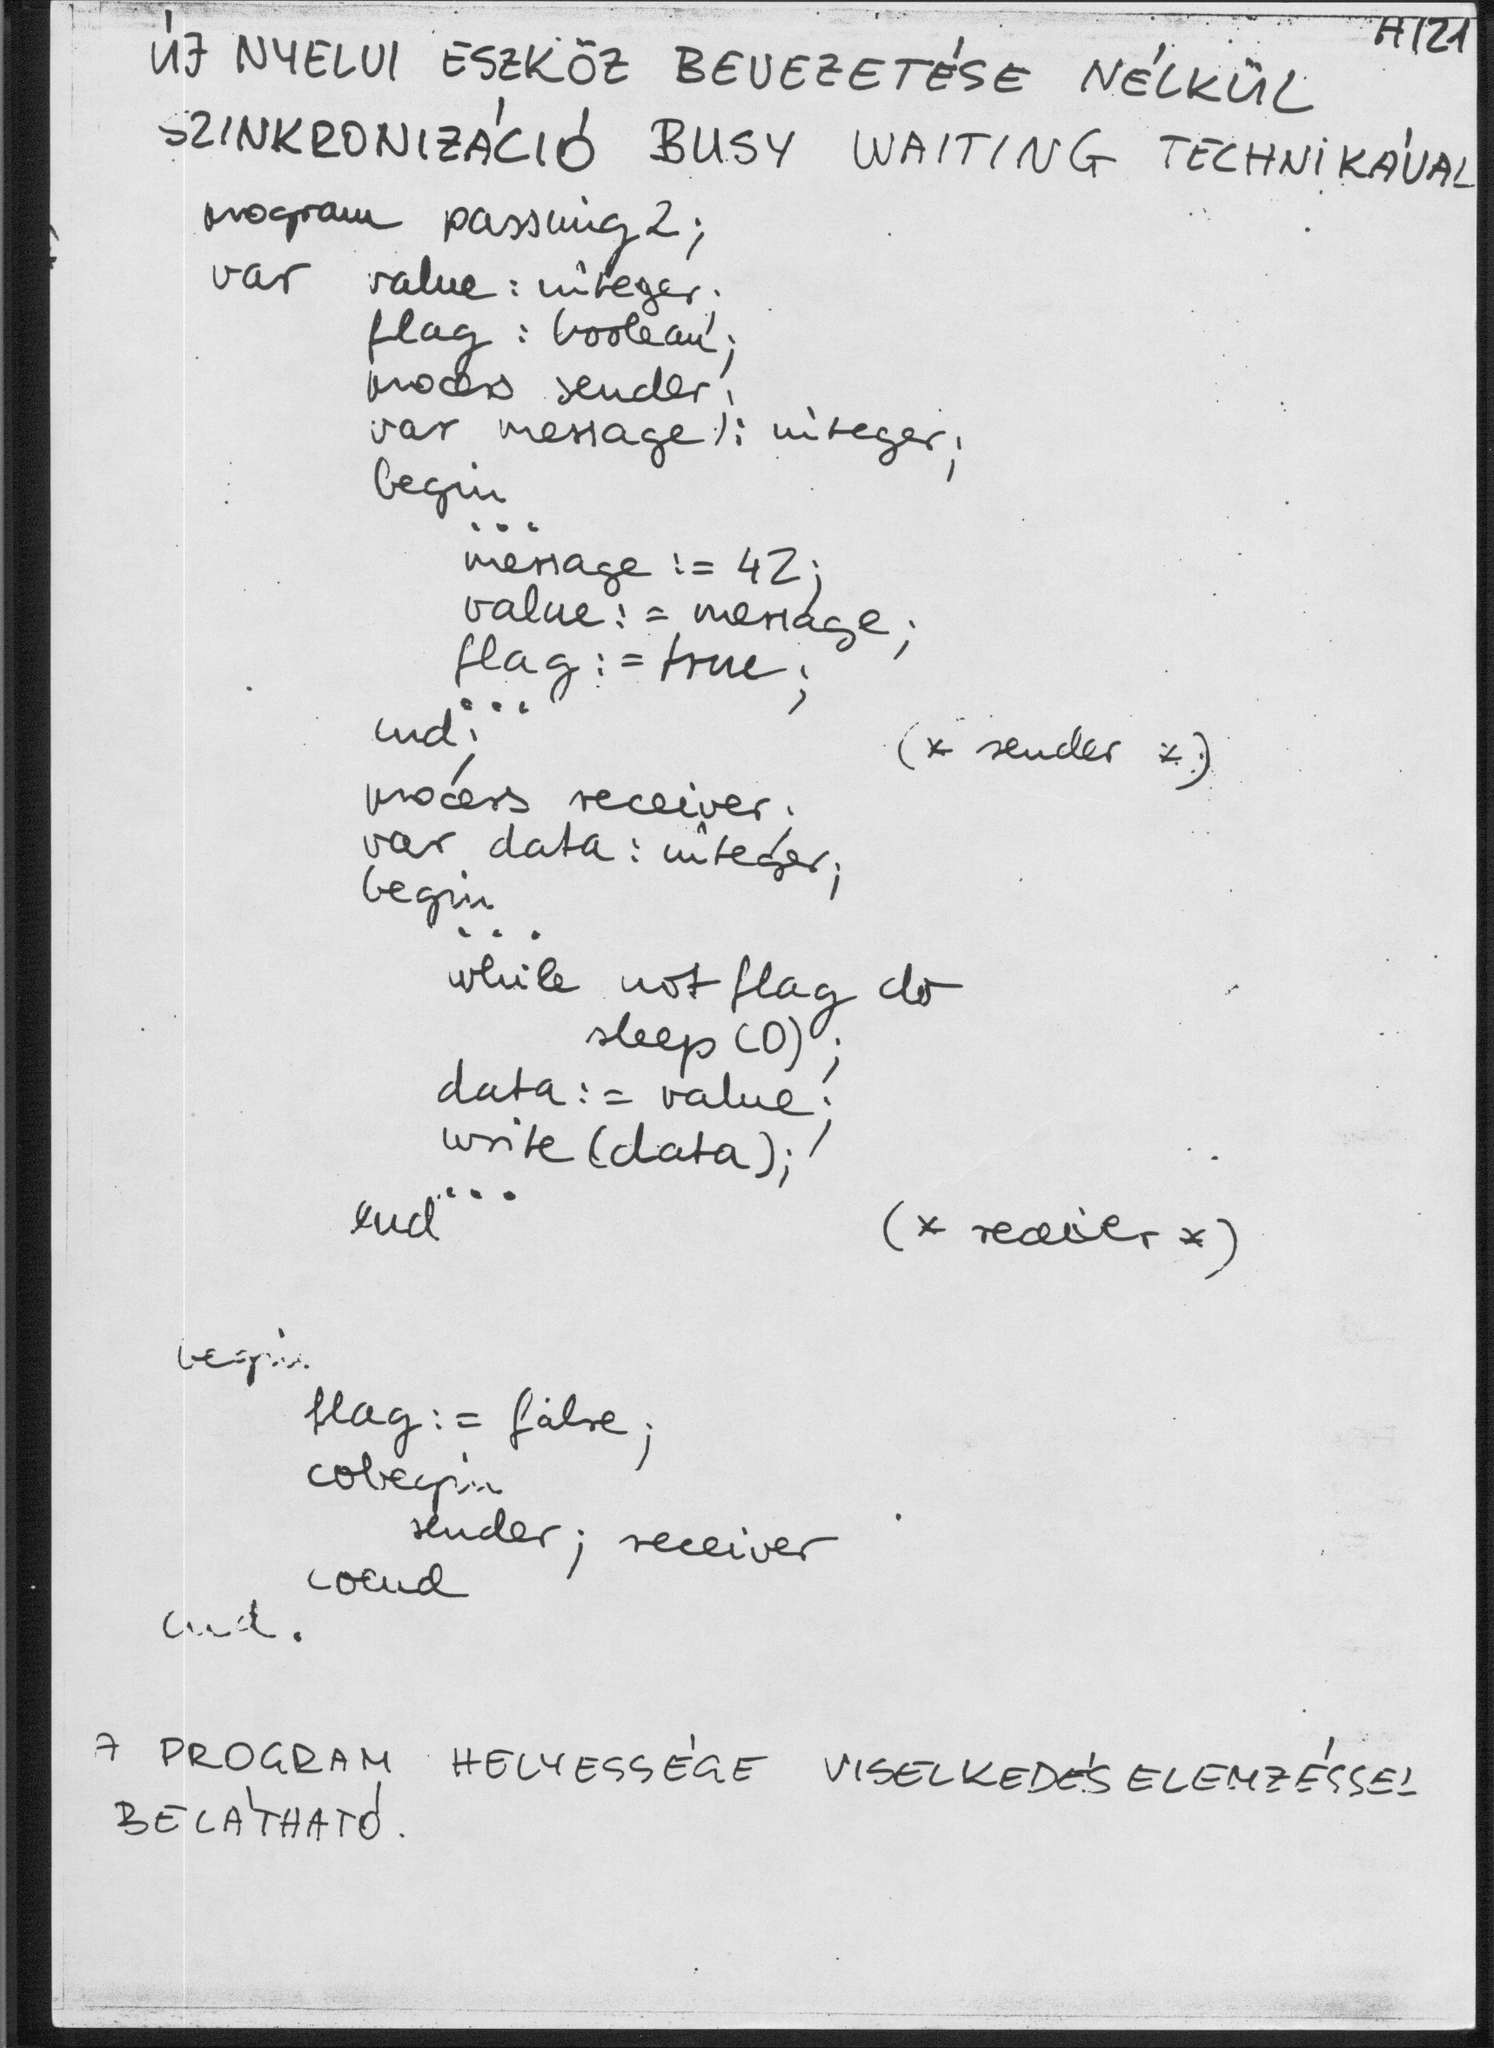 H/21
ÚJ NYELVI ESZKÖZ BEVEZETÉSE NÉLKÜL
SZINKRONIZÁCIÓ BUSY WAITING TECHNIKÁVAL
program passing2;
var value : integer;
flag : boolean;
process sender;
var message : integer;
begin
...
message := 42;
value := message;
flag := true;
...
end; (* sender *)
process receiver;
var data : integer;
begin
...
while not flag do
sleep (0);
data := value;
write (data);
...
end (* receiver *)
begin
flag := false;
cobegin
sender; receiver
coend
end.
A PROGRAM HELYESSÉGE VISELKEDÉSELEMZÉSSEL
BELÁTHATÓ.